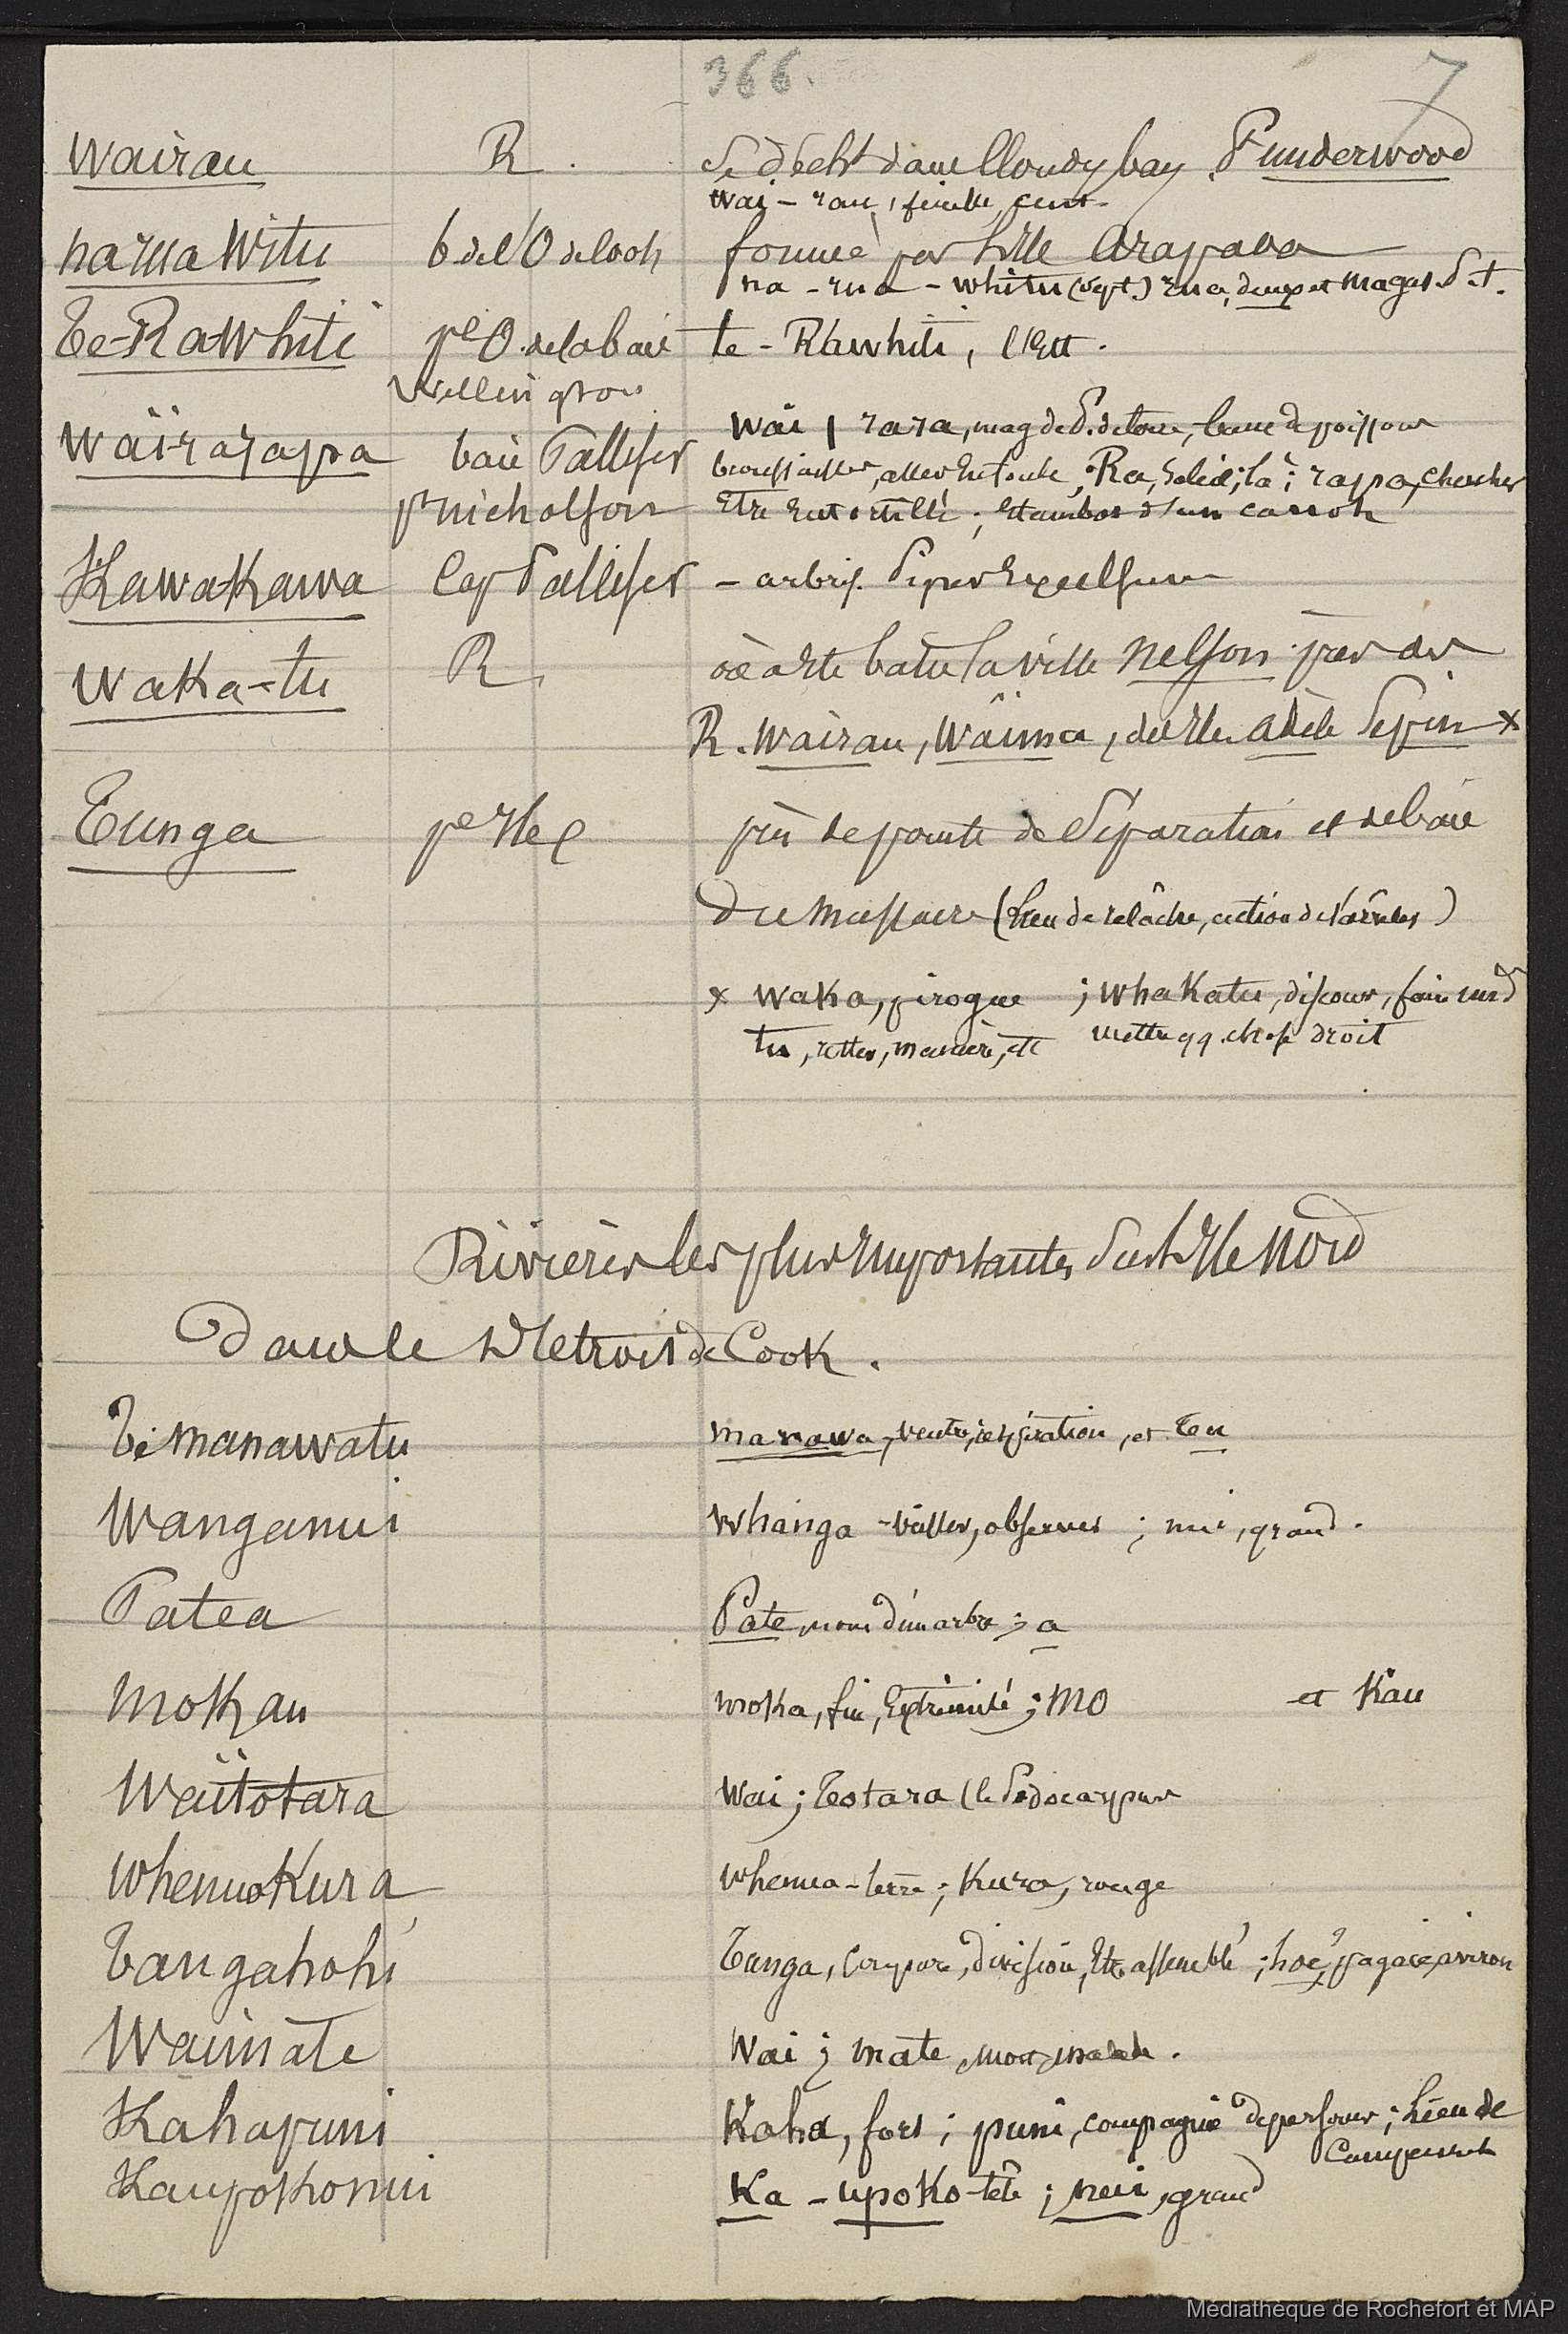 366. 7
Wairau R. se décht dans Cloudy bay, Pt underwood
Wai - rau, feuille, cent.
narua Witu b de l'O de looh formée par l'Ile Arapava
na - rua - whitu (sept) rua, deux et magas. d. t.
Te-Rawhiti pte O. de la baie te - Rawhiti, l'Est.
Wellington
Waïrarapa baie Palliser Wai | rara, mag de P. de terre, banc de poissons
broussailles, aller en foule; Ra, soleil; là; rapa, chercher
pt nicholson Etre entortillé; Etambot d'un canoh
Kawakawa Cap Palliser - arbris. Piper Excelsum
Waka-tu R. où a été bâtie la ville Nelson près des
R. Wairau, Waima, des Iles Adèle Pepin x
Tunga pte Ile près de pointe de Séparation et de baie
du Massacre (Lieu de relâche, action de s'arrêter)
x Waka, pirogue ; Whakatu, discour, faire un d
tu, rester, manière, etc mettre qq. chose droit
Rivières les plus Importantes sur l'Ile Nord
Dans le Détroit de Cook.
Te manawatu manawa, ventre, respiration, et Tu
Wanganui Whanga - veiller, observer ; nui, grand.
Patea Pate, nom d'un arbre ; a
Mokau moka, fin, Extrémité ; MO et Kau
Waïtotara Wai ; Totara (le Podocarpus
Whenuakura Whenua - terre ; Kura, rouge
Tangahohi Tanga, Coupure, division, Etre assemblé ; hoe, pagaie, aviron
Waimate Wai ; mate, mort, malade.
Kahapuni Kaha, fort ; puni, compagnie de personnes ; Lieu de
Campement
Kaupokonui Ka - upoko - tête ; nui, grand
Médiathèque de Rochefort et MAP